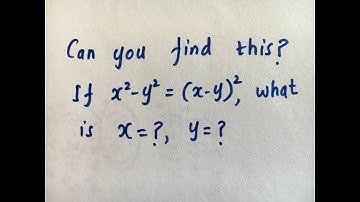 Can you find this?
If x²-y² = (x-y)², what
is x=?, y=?